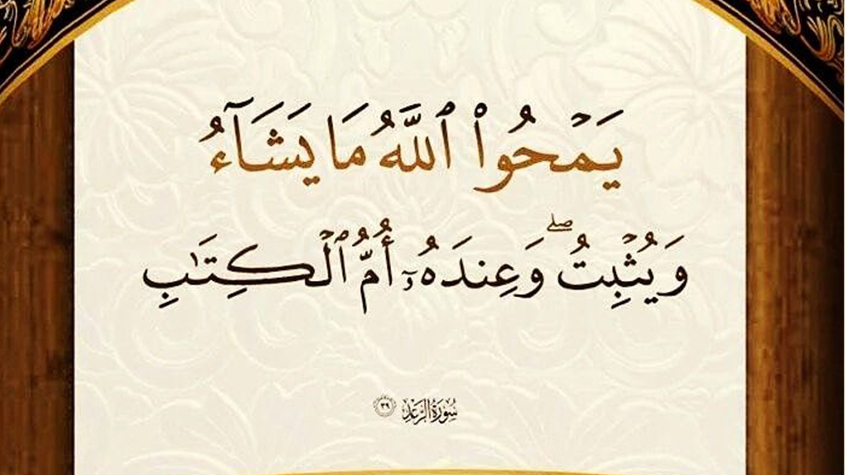 يَمۡحُوا۟ ٱللَّهُ مَا يَشَآءُ
وَيُثۡبِتُۖ وَعِندَهُۥٓ أُمُّ ٱلۡكِتَٰبِ
سُورَةُ الرَّعۡدِ ٣٩